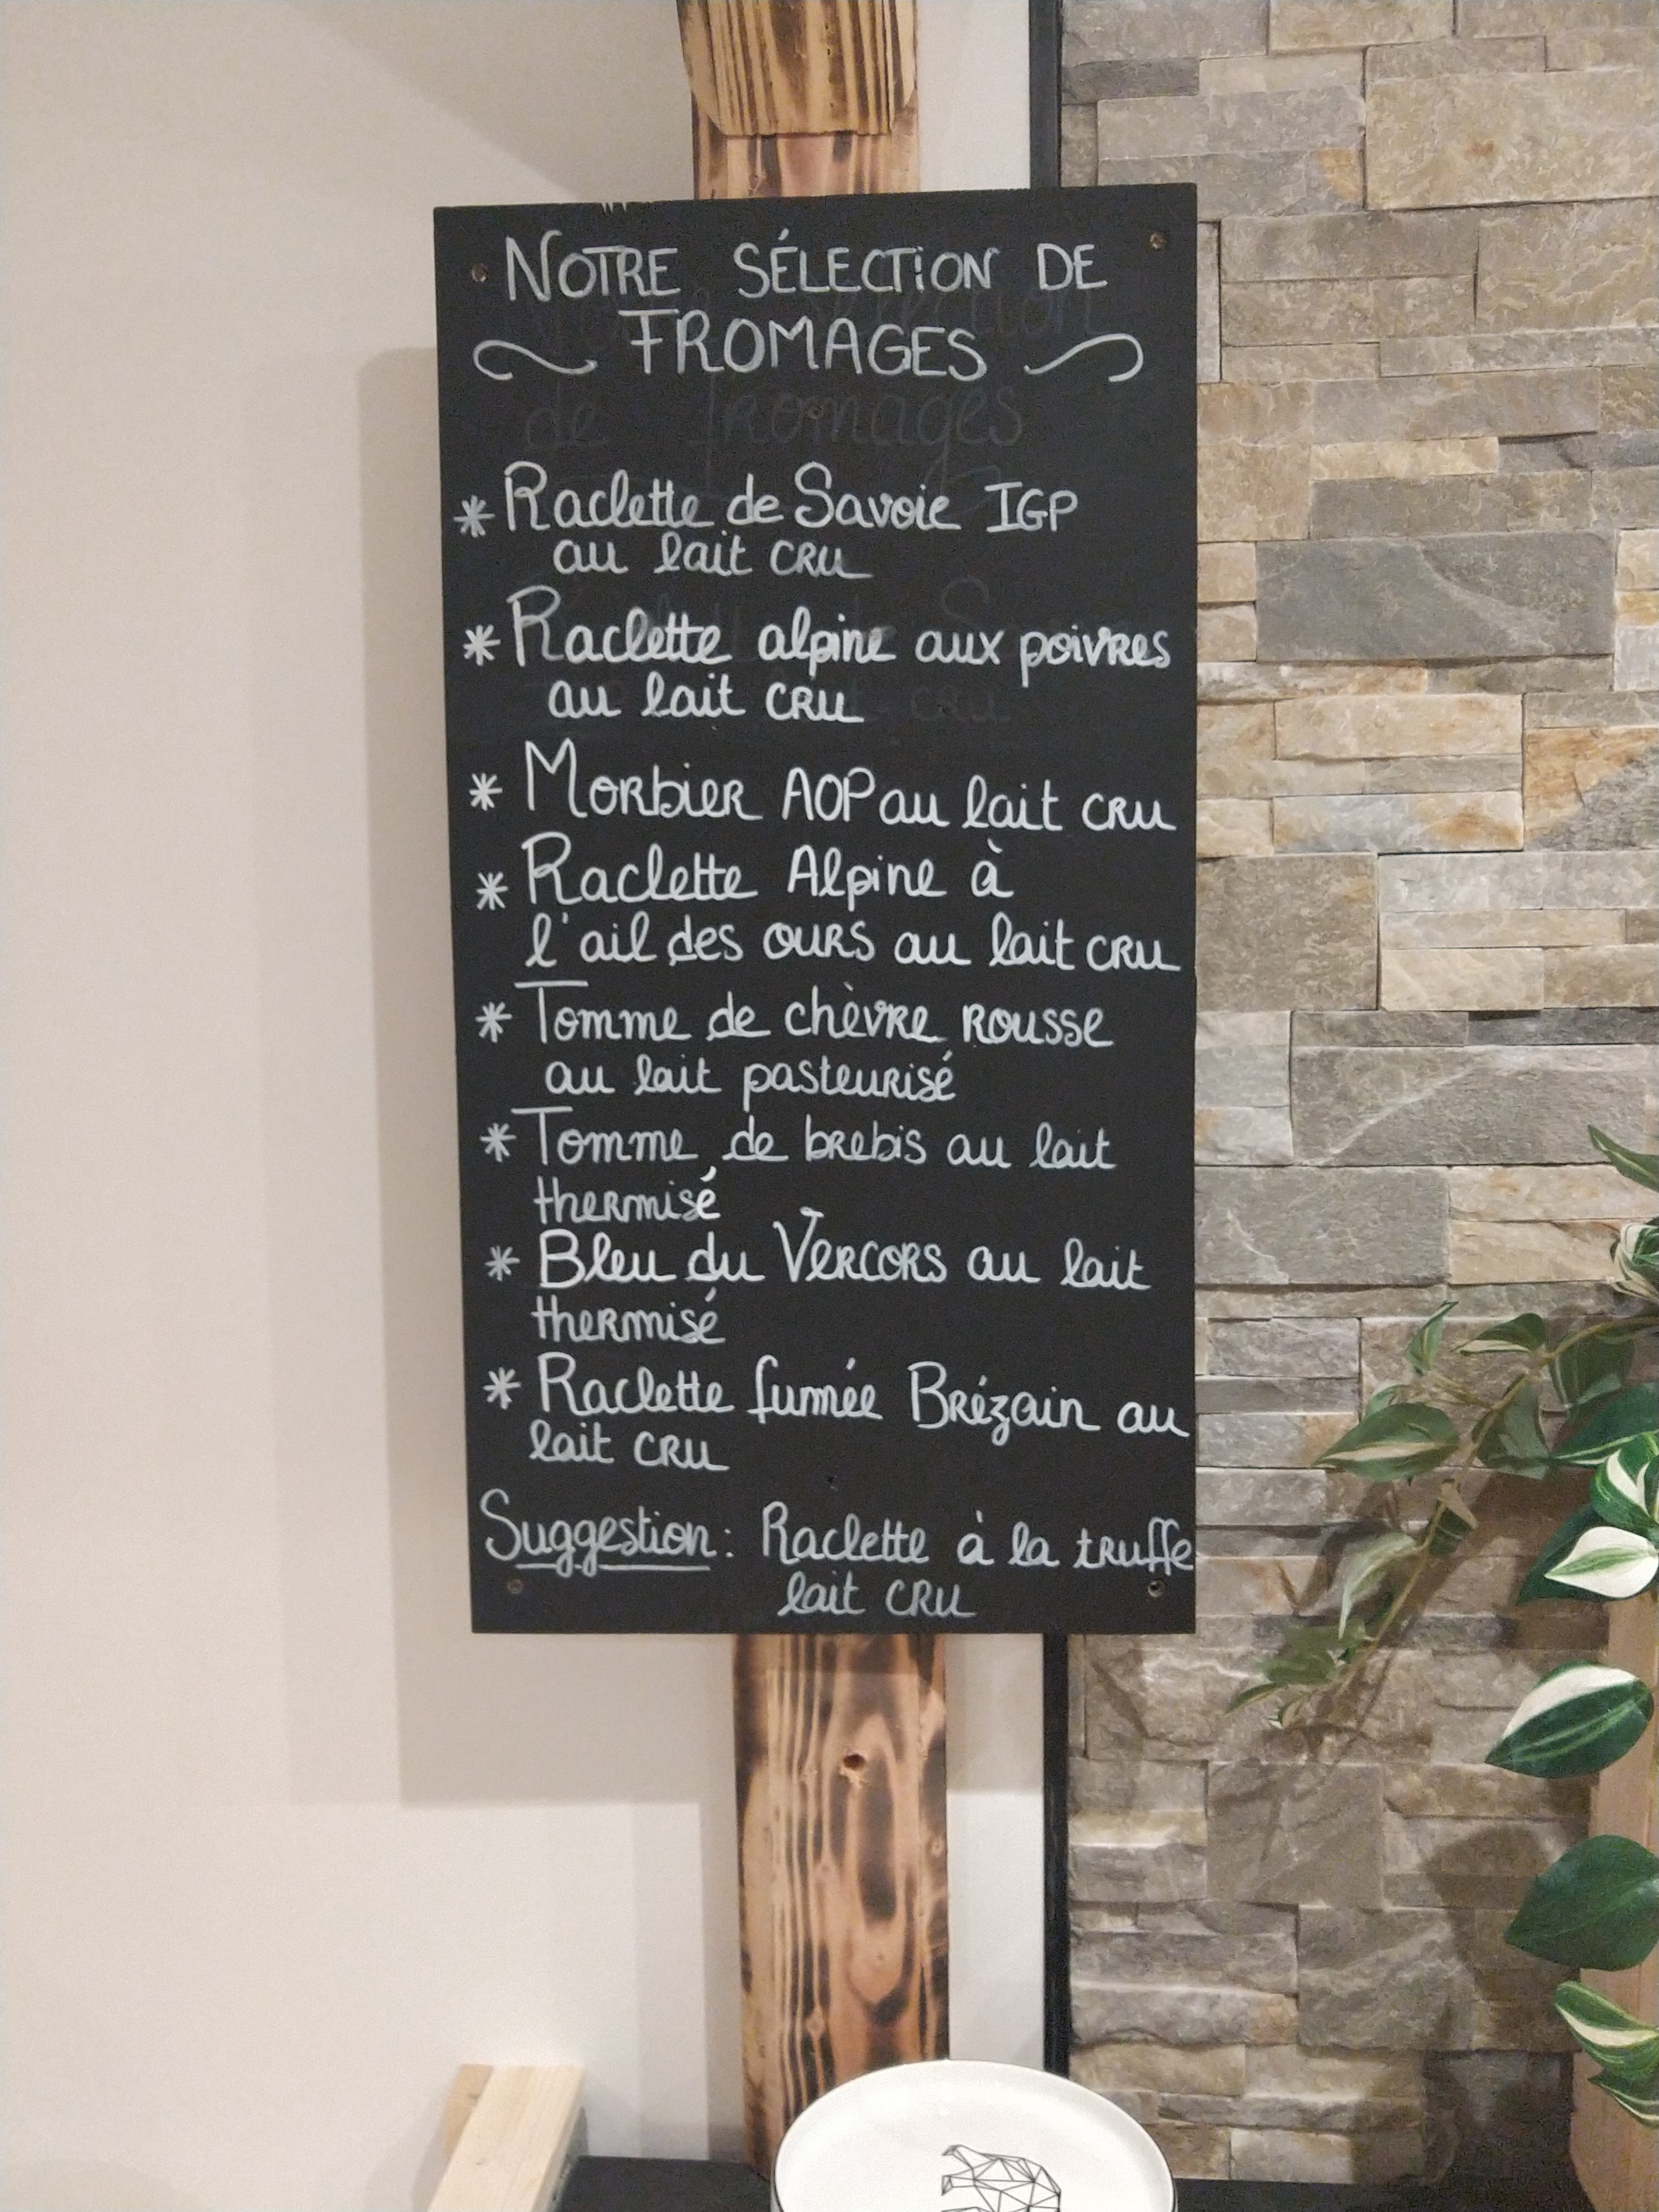 NOTRE SÉLECTION DE
FROMAGES
* Raclette de Savoie IGP
au lait cru
* Raclette alpine aux poivres
au lait cru
* Morbier AOP au lait cru
* Raclette Alpine à
l'ail des ours au lait cru
* Tomme de chèvre rousse
au lait pasteurisé
* Tomme de brebis au lait
thermisé
* Bleu du Vercors au lait
thermisé
* Raclette fumée Brézain au
lait cru
Suggestion : Raclette à la truffe
lait cru